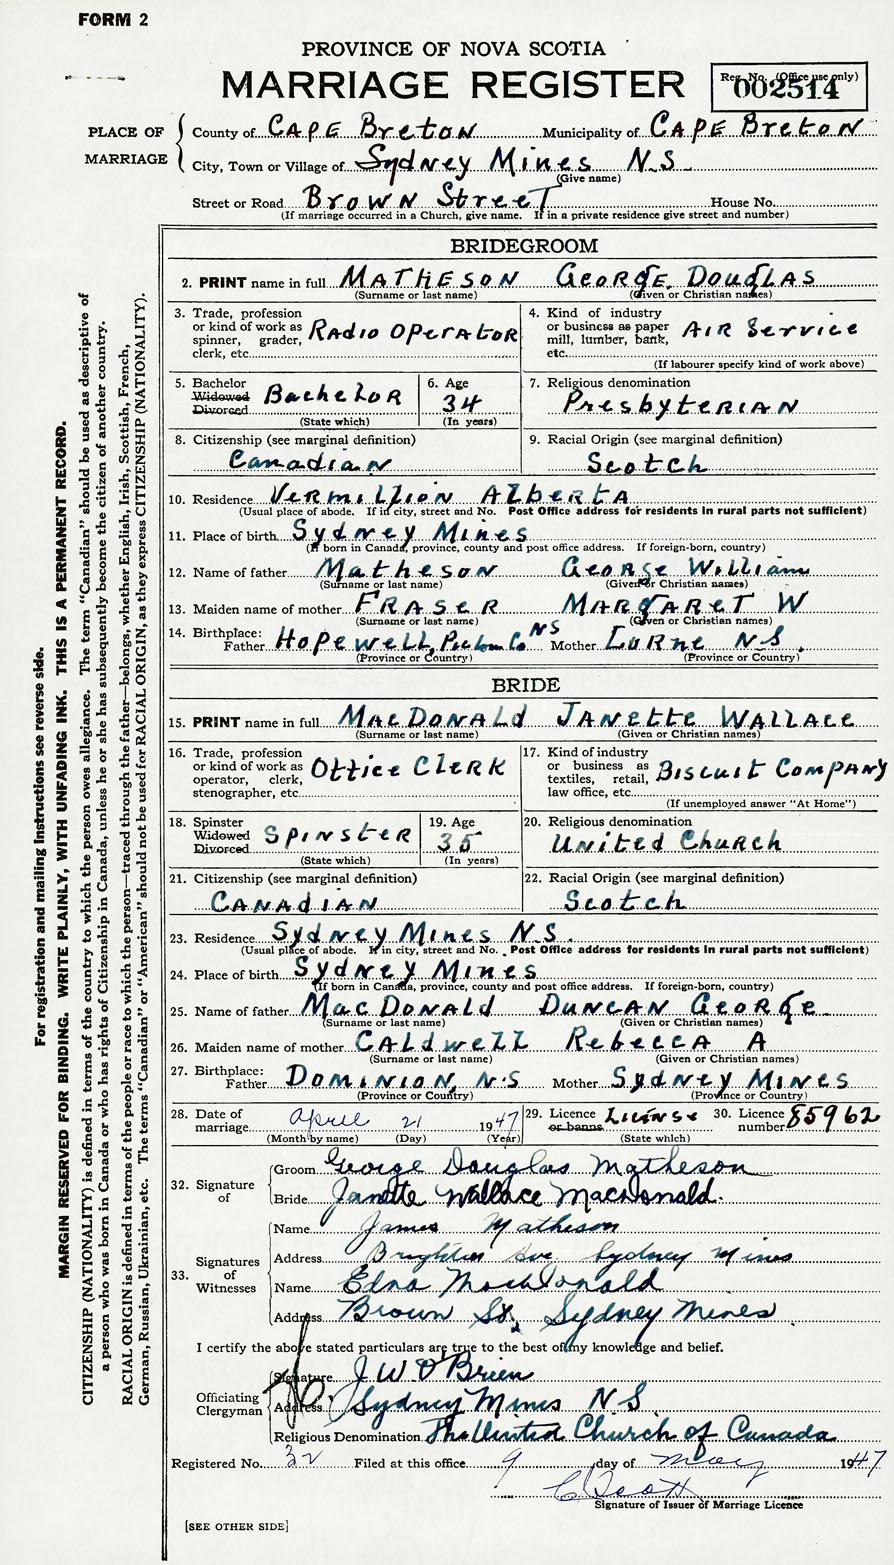 FORM 2
PROVINCE OF NOVA SCOTIA
MARRIAGE REGISTER
Reg. No. (Office use only)
002514
PLACE OF MARRIAGE
County of CAPE Breton Municipality of CAPE Breton
City, Town or Village of Sydney Mines N.S.
(Give name)
Street or Road Brown Street House No.
(If marriage occurred in a Church, give name. If in a private residence give street and number)
BRIDEGROOM
2. PRINT name in full MATHESON GEORGE DOUGLAS
(Surname or last name) (Given or Christian names)
3. Trade, profession or kind of work as spinner, grader, clerk, etc. RADIO OPERATOR
4. Kind of industry or business as paper mill, lumber, bank, etc. AIR Service
(If labourer specify kind of work above)
5. Bachelor Widowed Divorced Bachelor
(State which)
6. Age 34
(In years)
7. Religious denomination
Presbyterian
8. Citizenship (see marginal definition)
Canadian
9. Racial Origin (see marginal definition)
Scotch
10. Residence Vermillion Alberta
(Usual place of abode. If in city, street and No. Post Office address for residents in rural parts not sufficient)
11. Place of birth Sydney Mines
(If born in Canada, province, county and post office address. If foreign-born, country)
12. Name of father Matheson George William
(Surname or last name) (Given or Christian names)
13. Maiden name of mother FRASER MARGARET W
(Surname or last name) (Given or Christian names)
14. Birthplace:
Father Hopewell, Pictou Co. NS Mother Lorne N.S.
(Province or Country) (Province or Country)
BRIDE
15. PRINT name in full MACDONALD JANETTE WALLACE
(Surname or last name) (Given or Christian names)
16. Trade, profession or kind of work as operator, clerk, stenographer, etc. Office Clerk
17. Kind of industry or business as textiles, retail, law office, etc. Biscuit Company
(If unemployed answer "At Home")
18. Spinster Widowed Divorced Spinster
(State which)
19. Age 35
(In years)
20. Religious denomination
United Church
21. Citizenship (see marginal definition)
CANADIAN
22. Racial Origin (see marginal definition)
Scotch
23. Residence Sydney Mines N.S.
(Usual place of abode. If in city, street and No. Post Office address for residents in rural parts not sufficient)
24. Place of birth Sydney Mines
(If born in Canada, province, county and post office address. If foreign-born, country)
25. Name of father MacDonald Duncan George
(Surname or last name) (Given or Christian names)
26. Maiden name of mother Caldwell Rebecca A
(Surname or last name) (Given or Christian names)
27. Birthplace:
Father DOMINION, N.S Mother Sydney Mines
(Province or Country) (Province or Country)
28. Date of marriage April 21 1947
(Month by name) (Day) (Year)
29. Licence or banns License
(State which)
30. Licence number 85962
32. Signature of
Groom George Douglas Matheson
Bride Janette Wallace MacDonald.
33. Signatures of Witnesses
Name James Matheson
Address Brighton Ave, Sydney Mines
Name Edna MacDonald
Address Brown St., Sydney Mines
I certify the above stated particulars are true to the best of my knowledge and belief.
Officiating Clergyman
Signature J W O'Brien
Address Sydney Mines N S
Religious Denomination The United Church of Canada
Registered No. 32 Filed at this office 9 day of May 1947
C Scott
Signature of Issuer of Marriage Licence
[SEE OTHER SIDE]
For registration and mailing instructions see reverse side.
MARGIN RESERVED FOR BINDING. WRITE PLAINLY, WITH UNFADING INK. THIS IS A PERMANENT RECORD.
CITIZENSHIP (NATIONALITY) is defined in terms of the country to which the person owes allegiance. The term "Canadian" should be used as descriptive of
a person who was born in Canada or who has rights of Citizenship in Canada, unless he or she has subsequently become the citizen of another country.
RACIAL ORIGIN is defined in terms of the people or race to which the person—traced through the father—belongs, whether English, Irish, Scottish, French,
German, Russian, Ukrainian, etc. The terms "Canadian" or "American" should not be used for RACIAL ORIGIN, as they express CITIZENSHIP (NATIONALITY).